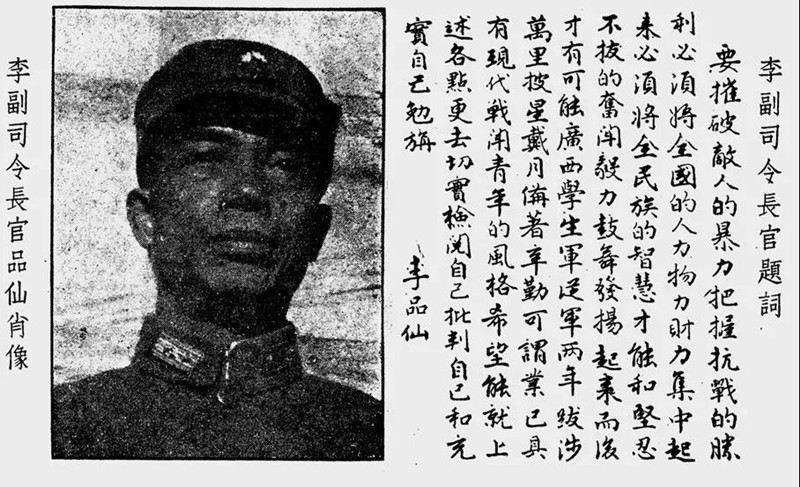 李副司令長官題詞
要摧破敵人的暴力把握抗戰的勝
利必須將全國的人力物力財力集中起
来必須將全民族的智慧才能和堅忍
不拔的奮鬥毅力鼓舞發揚起来而後
才有可能廣西學生軍從軍两年跋涉
萬里披星戴月備著辛勤可謂業已具
有現代戰鬥青年的風格希望能就上
述各點更去切實檢閱自己批判自己和充
實自己勉旃
李品仙
李副司令長官品仙肖像